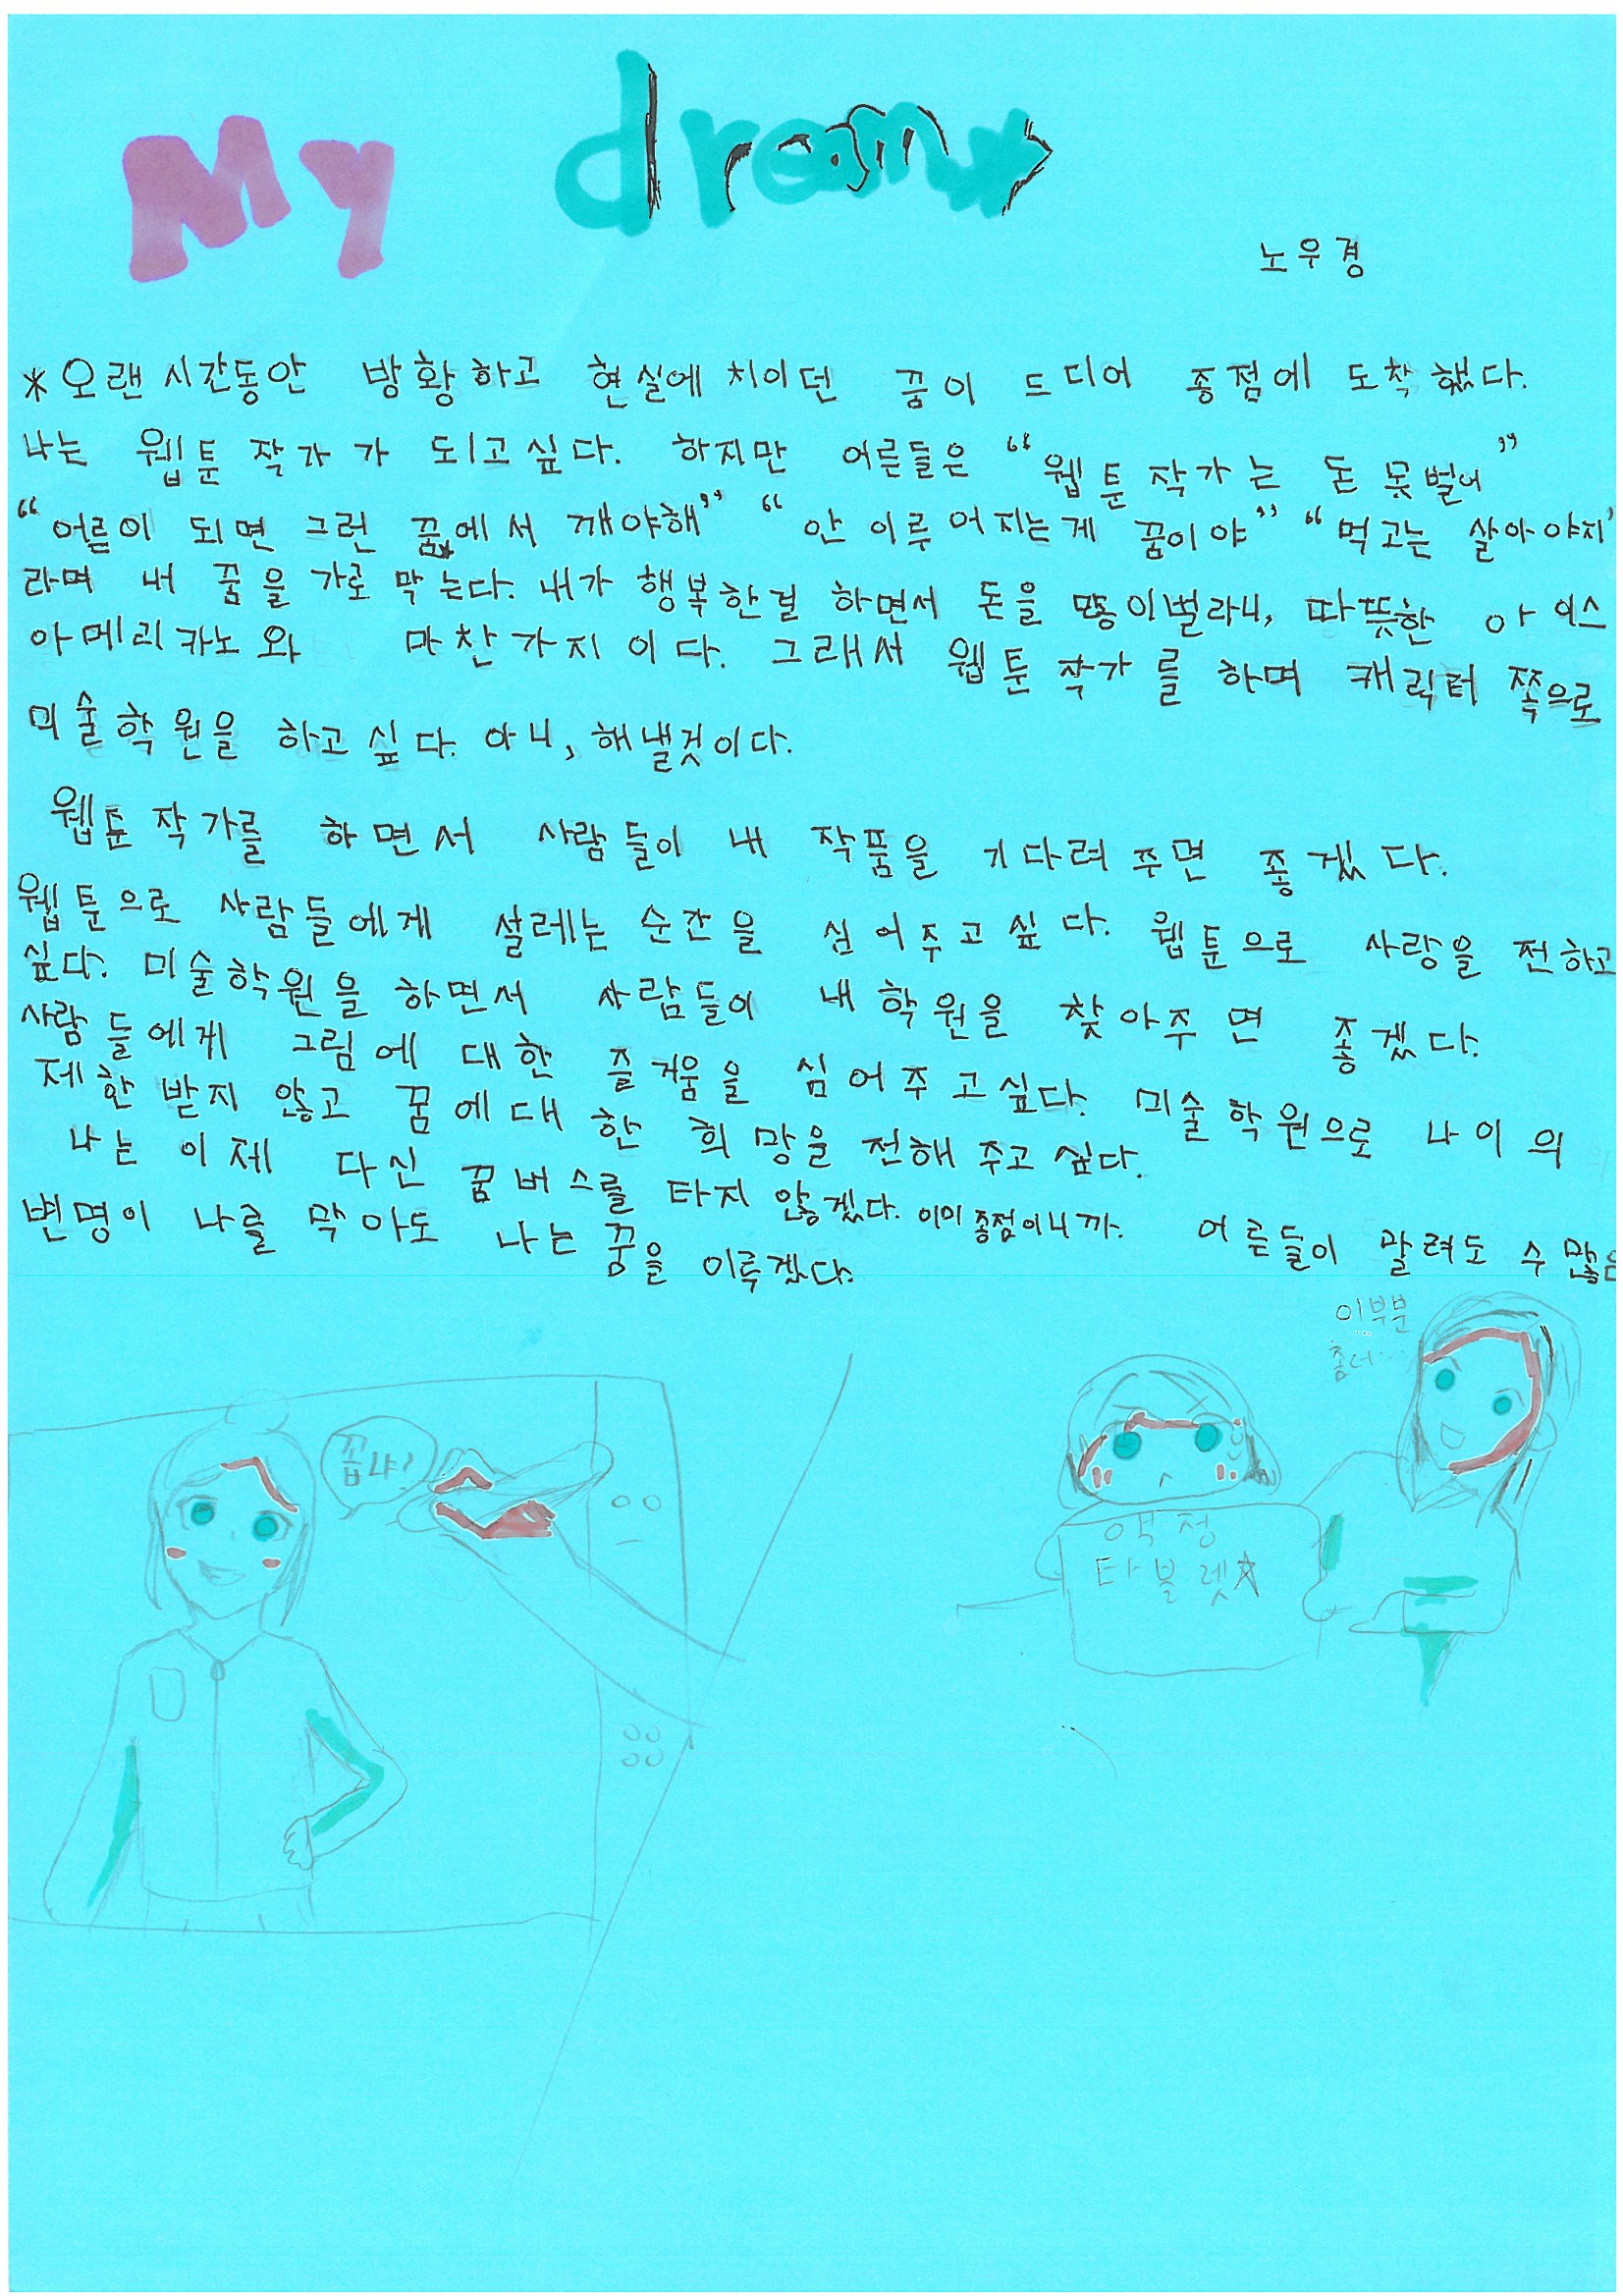 My dream
노우경
*오랜 시간동안 방황하고 현실에 치이던 꿈이 드디어 종점에 도착했다.
나는 웹툰 작가가 되고싶다. 하지만 어른들은 “웹툰 작가는 돈 못벌어”
“어른이 되면 그런 꿈에서 깨야해” “안 이루어지는게 꿈이야” “먹고는 살아야지”
라며 내 꿈을 가로 막는다. 내가 행복한걸 하면서 돈을 많이벌라니, 따뜻한 아이스
아메리카노와 마찬가지이다. 그래서 웹툰 작가를 하며 캐릭터 쪽으로
미술학원을 하고싶다. 아니, 해낼것이다.
웹툰작가를 하면서 사람들이 내 작품을 기다려주면 좋겠다.
웹툰으로 사람들에게 설레는 순간을 심어주고싶다. 웹툰으로 사랑을 전하고
싶다. 미술학원을 하면서 사람들이 내 학원을 찾아주면 좋겠다.
사람들에게 그림에 대한 즐거움을 심어주고싶다. 미술학원으로 나이의
제한받지 않고 꿈에대한 희망을 전해주고싶다.
나는 이제 다신 꿈버스를 타지 않겠다. 이미 종점이니까. 어른들이 말려도 수많은
변명이 나를 막아도 나는 꿈을 이루겠다.
이부분
좀더...
꼽냐?
액정
타블렛☆